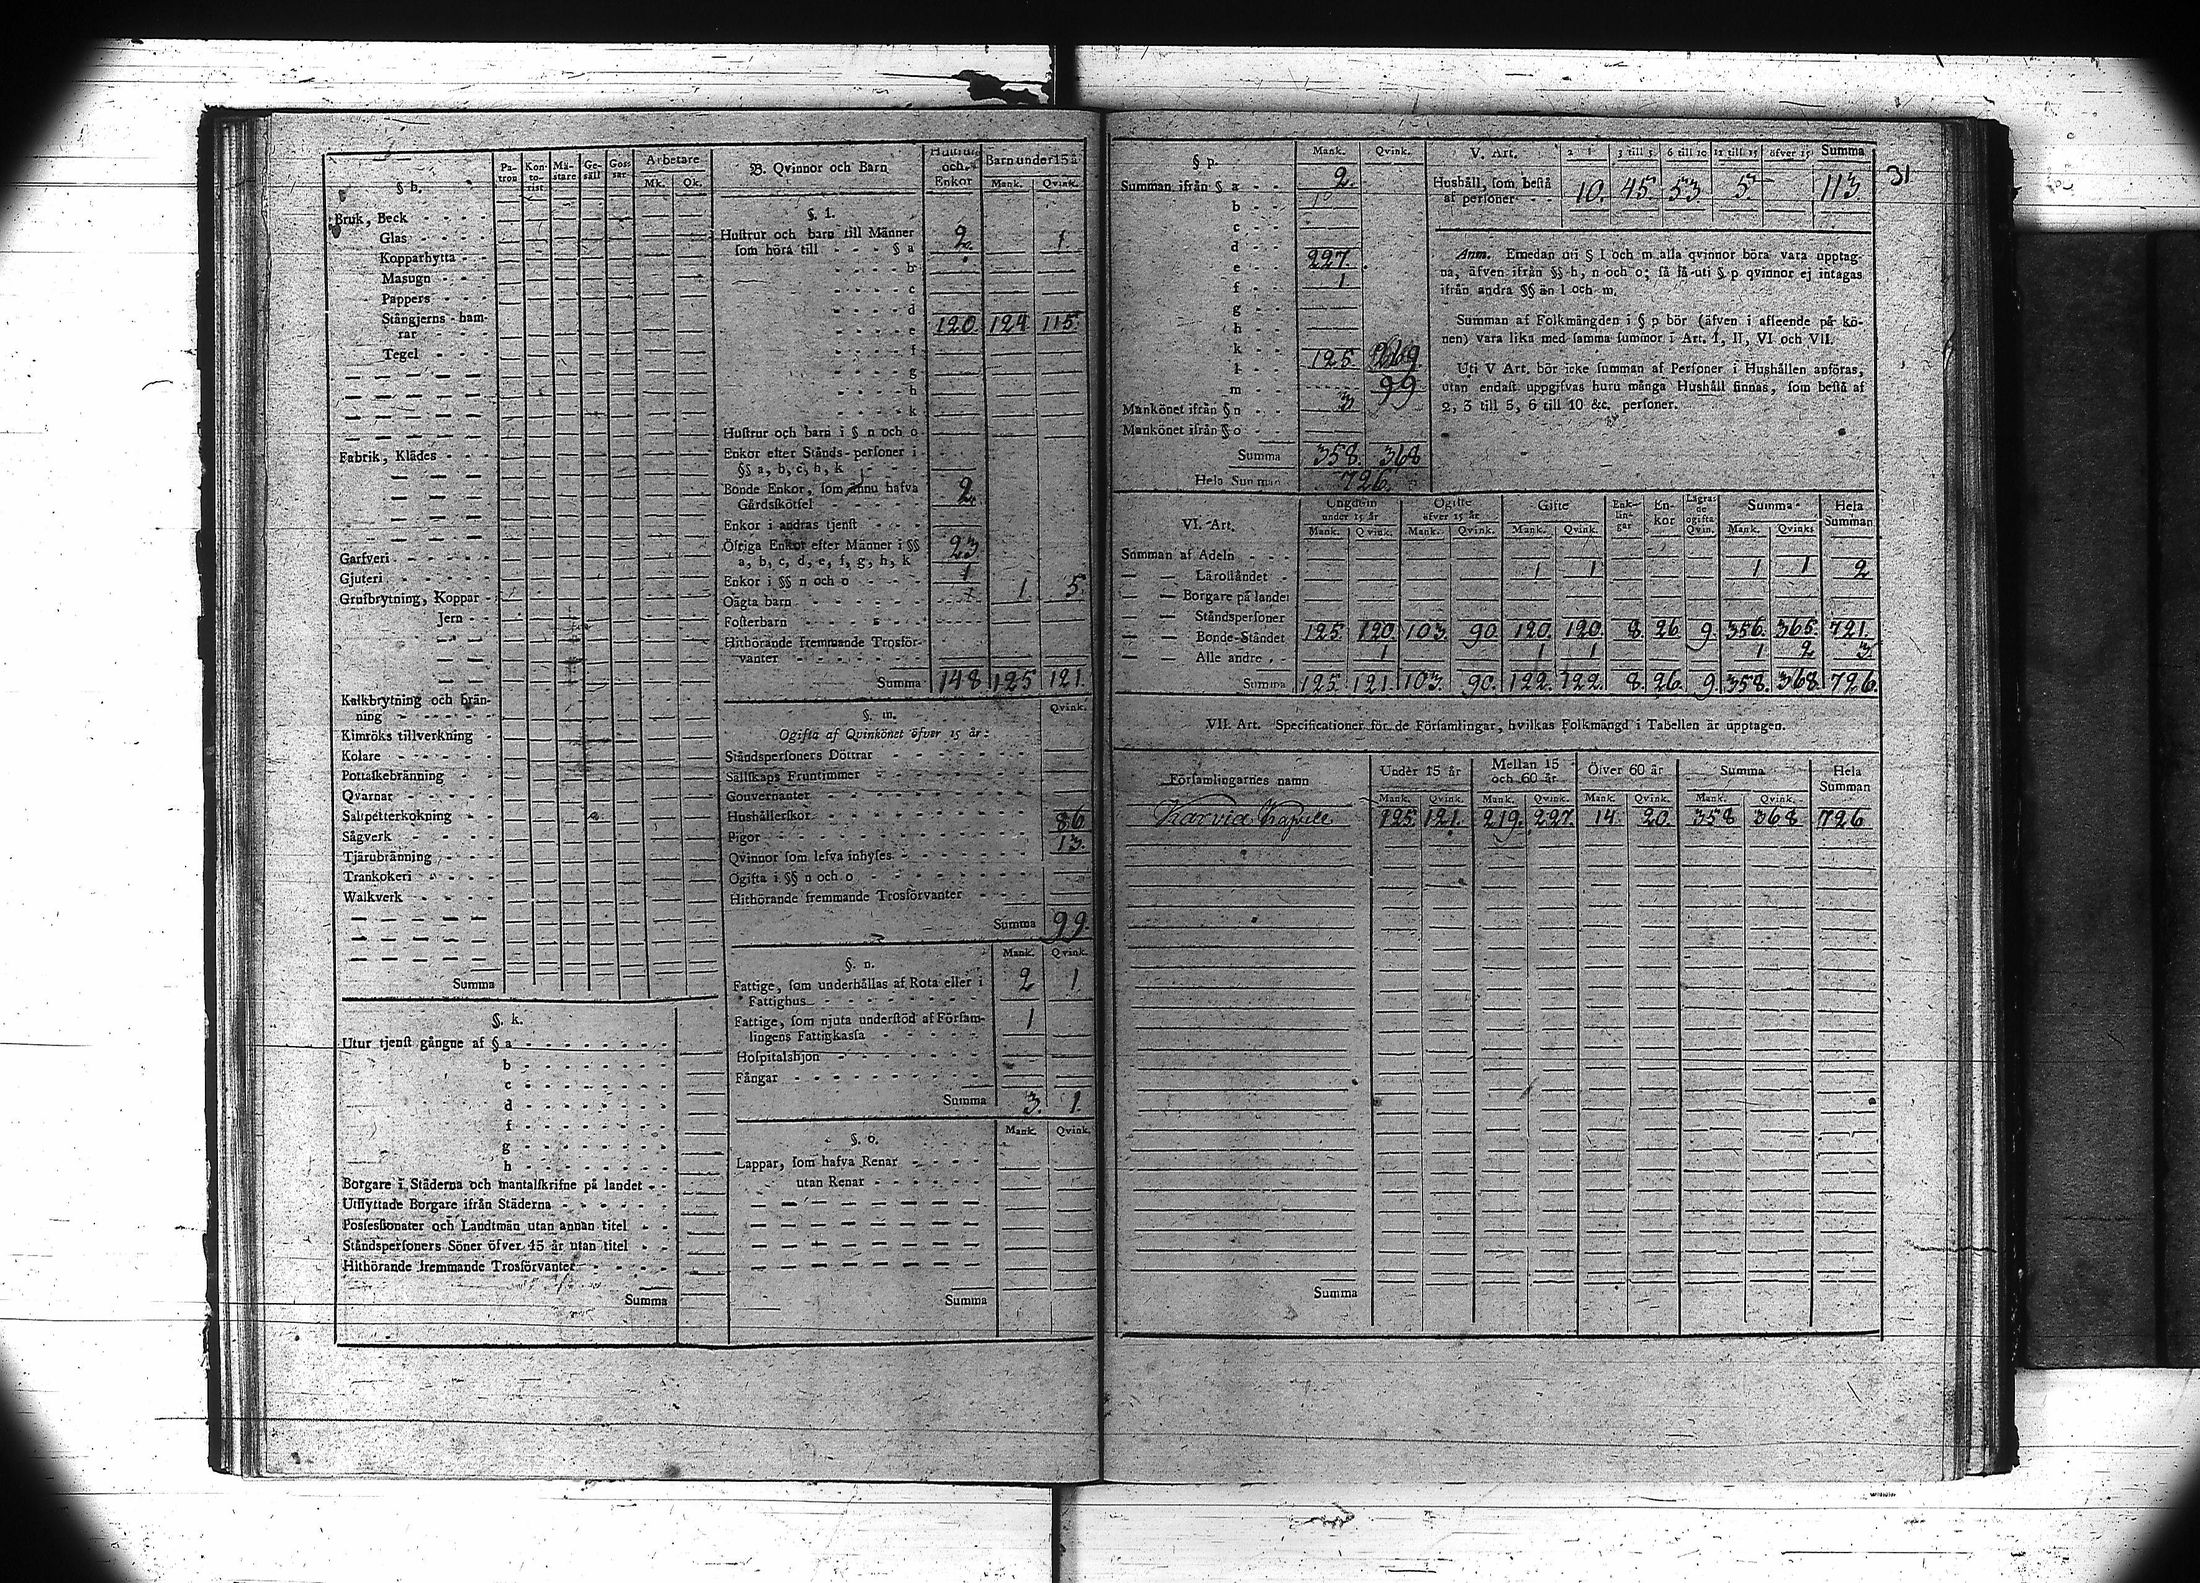 § h.
Pa-
tron
Kon-
to-
rist
Mä-
stare
Ge-
säll
Gos-
sar
Arbetare
Mk.
Qk.
Bruk, Beck
Glas
Kopparhytta
Masugn
Pappers
Stångjerns-ham-
rar
Tegel
Fabrik, Klädes
Garfveri
Gjuteri
Grufbrytning, Koppar
Jern
Kalkbrytning och brän-
ning
Kimröks tillverkning
Kolare
Pottaskebränning
Qvarnar
Saltpetterkokning
Sågverk
Tjärubränning
Trankokeri
Walkverk
Summa
§. k.
Utur tjenst gångne af § a
b
c
d
f
g
h
Borgare i Städerna och mantalskrifne på landet
Utflyttade Borgare ifrån Städerna
Possessionater och Landtmän utan annan titel
Ståndspersoners Söner öfver 15 år utan titel
Hithörande fremmande Trosförvanter
Summa
B. Qvinnor och Barn
Hustrur
och
Enkor
Barn under 15 å
Mank.
Qvink.
§. l.
Hustrur och barn till Männer
som höra till § a 2. 1.
b
c
d
e 120. 124 115.
f
g
h
k
Hustrur och barn i § n och o
Enkor efter Stånds-personer i
§§ a, b, c, h, k
Bonde Enkor, som ännu hafva
Gårdskötsel 2.
Enkor i andras tjenst
Öfriga Enkor efter Männer i §§
a, b, c, d, e, f, g, h, k 23
Enkor i §§ n och o 1
Oägta barn 1. 5.
Fosterbarn
Hithörande fremmande Trosför-
vanter
Summa 148 125 121.
§. m.
Qvink.
Ogifta af Qvinkönet öfver 15 år:
Ståndspersoners Döttrar
Sällskaps Fruntimmer
Gouvernanter
Hushållerskor
Pigor 86
Qvinnor som lefva inhyses 13.
Ogifta i §§ n och o
Hithörande fremmande Trosförvanter
Summa 99.
§. n.
Mank. Qvink.
Fattige, som underhållas af Rota eller i
Fattighus 2 1
Fattige, som njuta understöd af Försam-
lingens Fattigkassa 1
Hospitalshjon
Fångar
Summa 3. 1.
§. o.
Mank. Qvink.
Lappar, som hafva Renar
utan Renar
Summa
31
§ p.
Mank. Qvink.
Summan ifrån § a 2.
b
c
d
e 227.
f 1
g
h
k
l 125. 269.
m 99
Mankönet ifrån § n 3
Mankönet ifrån § o
Summa 358. 368
Hela Summan 726.
V. Art.
3 till 5. 6 till 10 11 till 15 öfver 15 Summa
Hushåll, som bestå
af personer 10. 45. 53 5. 113
Anm. Emedan uti § l och m alla qvinnor böra vara upptag-
na, äfven ifrån §§ h, n och o; så få uti § p qvinnor ej intagas
ifrån andra §§ än l och m.
Summan af Folkmängden i § p bör (äfven i afseende på kö-
nen) vara lika med samma summor i Art. I, II, VI och VII.
Uti V Art. bör icke summan af Personer i Hushållen anföras,
utan endast uppgifvas huru många Hushåll finnas, som bestå af
2, 3 till 5, 6 till 10 &c. personer.
VI. Art.
Ungdom
under 15 år
Ogifte
öfver 15 år
Gifte
Enk-
lin-
gar
En-
kor
Lägra-
de
ogifta
Qvin.
Summa
Hela
Summan
Mank. Qvink. Mank. Qvink. Mank. Qvink. Mank. Qvink.
Summan af Adeln
— — Läroståndet 1 1 1 1 2
— — Borgare på landet
— — Ståndspersoner
— — Bonde-Ståndet 125. 120. 103. 90. 120. 120. 8. 26. 9. 356. 365. 721.
— — Alle andre 1 1 1 1 2 3.
Summa 125. 121. 103. 90. 122. 122. 8. 26. 9. 358. 368. 726.
VII. Art. Specificationer för de Församlingar, hvilkas Folkmängd i Tabellen är upptagen.
Församlingarnes namn
Under 15 år
Mellan 15
och 60 år
Öfver 60 år
Summa
Hela
Summan
Mank. Qvink. Mank. Qvink. Mank. Qvink. Mank. Qvink.
Karvia Kapell 125. 121. 219. 227. 14. 20. 358 368 726
Summa